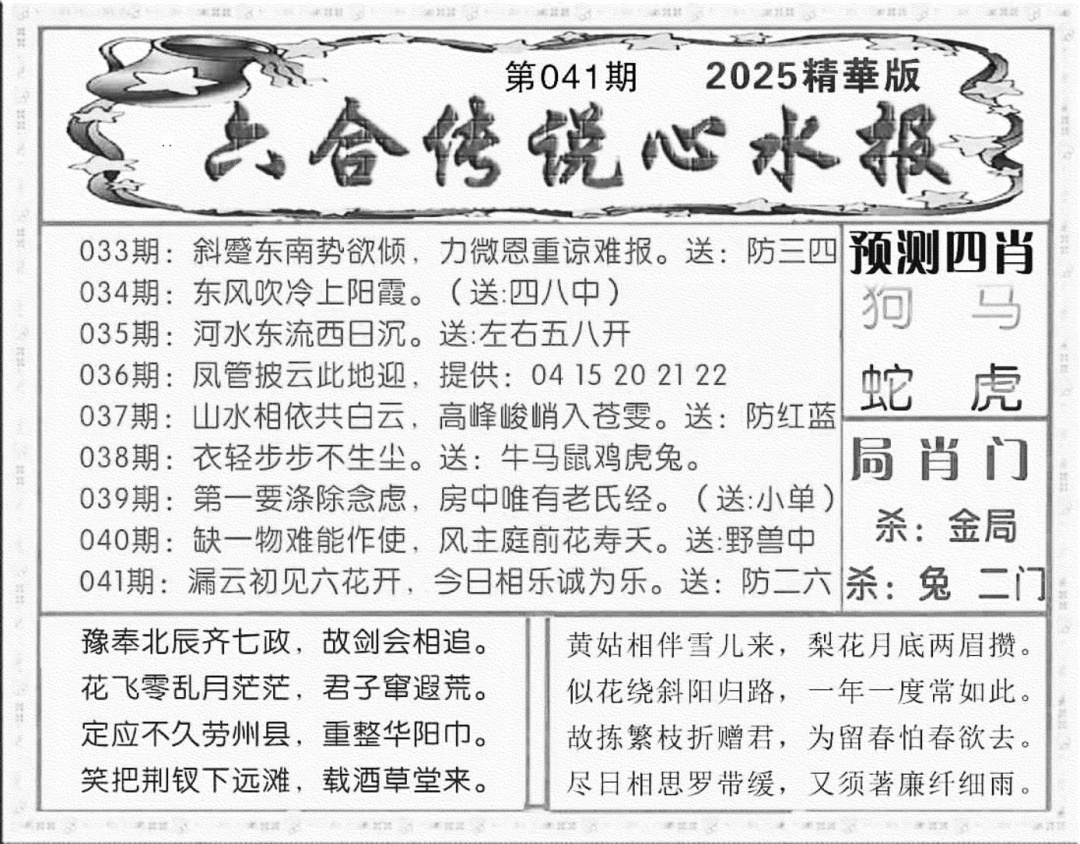 第041期 2025精華版
六合传说心水报
033期：斜蹙东南势欲倾，力微恩重谅难报。送：防三四
034期：东风吹冷上阳霞。（送:四八中）
035期：河水东流西日沉。送:左右五八开
036期：凤管披云此地迎，提供：04 15 20 21 22
037期：山水相依共白云，高峰峻峭入苍雯。送：防红蓝
038期：衣轻步步不生尘。送：牛马鼠鸡虎兔。
039期：第一要涤除念虑，房中唯有老氏经。（送:小单）
040期：缺一物难能作使，风主庭前花寿夭。送:野兽中
041期：漏云初见六花开，今日相乐诚为乐。送：防二六
预测四肖
狗 马
蛇 虎
局肖门
杀：金局
杀：兔 二门
豫奉北辰齐七政，故剑会相追。
花飞零乱月茫茫，君子窜遐荒。
定应不久劳州县，重整华阳巾。
笑把荆钗下远滩，载酒草堂来。
黄姑相伴雪儿来，梨花月底两眉攒。
似花绕斜阳归路，一年一度常如此。
故拣繁枝折赠君，为留春怕春欲去。
尽日相思罗带缓，又须著廉纤细雨。